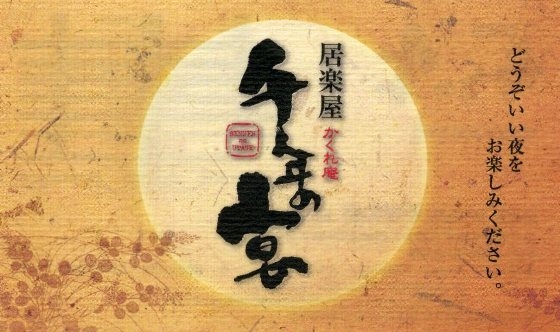 どうぞいい夜を
お楽しみください。
居楽屋
かくれ庵
千年の宴
SENNEN
NO
UTAGE